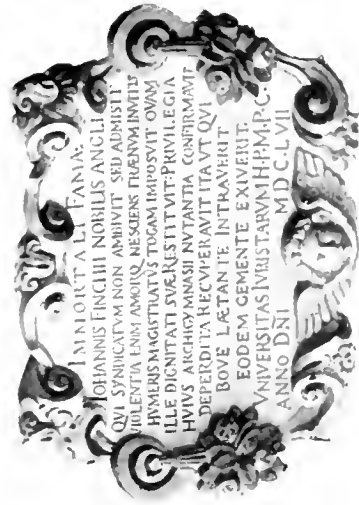 IMMORTALI FAMÆ
IOHANNIS FINCHII NOBILIS ANGLI
QVI SYNDICATVM NON AMBIVIT SED ADMISIT
VIOLENTIA ENIM AMORIQ NESCIENS FRÆNVM INMITIS
HVMERIS MAGISTRATVS TOGAM IMPOSVIT QVAM
ILLE DIGNITATI SVÆ RESTITVIT: PRIVILEGIA
HVIVS ARCHIGYMNASII NVTANTIA CONFIRMAVIT
DEPERDITA RECVPERAVIT ITAVT QVI
BOVE LÆTANTE INTRAVERIT
EODEM GEMENTE EXIVERIT.
VNIVERSITAS IVRISTARVM I H. P. M. P. C
ANNO DNI MDCLVII